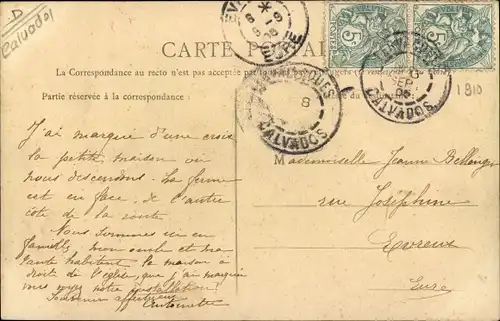 D
Calvados
CARTE POSTALE
La Correspondance au recto n'est pas acceptée par
Partie réservée à la correspondance
5
5
EURE
CALVADOS
SEPT
CALVADOS
1910
J'ai marqué d'une croix
la petite maison où
nous descendons. La ferme
est en face, de l'autre
côté de la route
Nous sommes ici en
famille, mon oncle et ma
tante habitent la maison à
droite de l'église, que j'ai marquée
notre installation!
Souvenir affectueux
Antoinette
Mademoiselle Jeanne Bellenger
rue Joséphine
Evreux
Eure